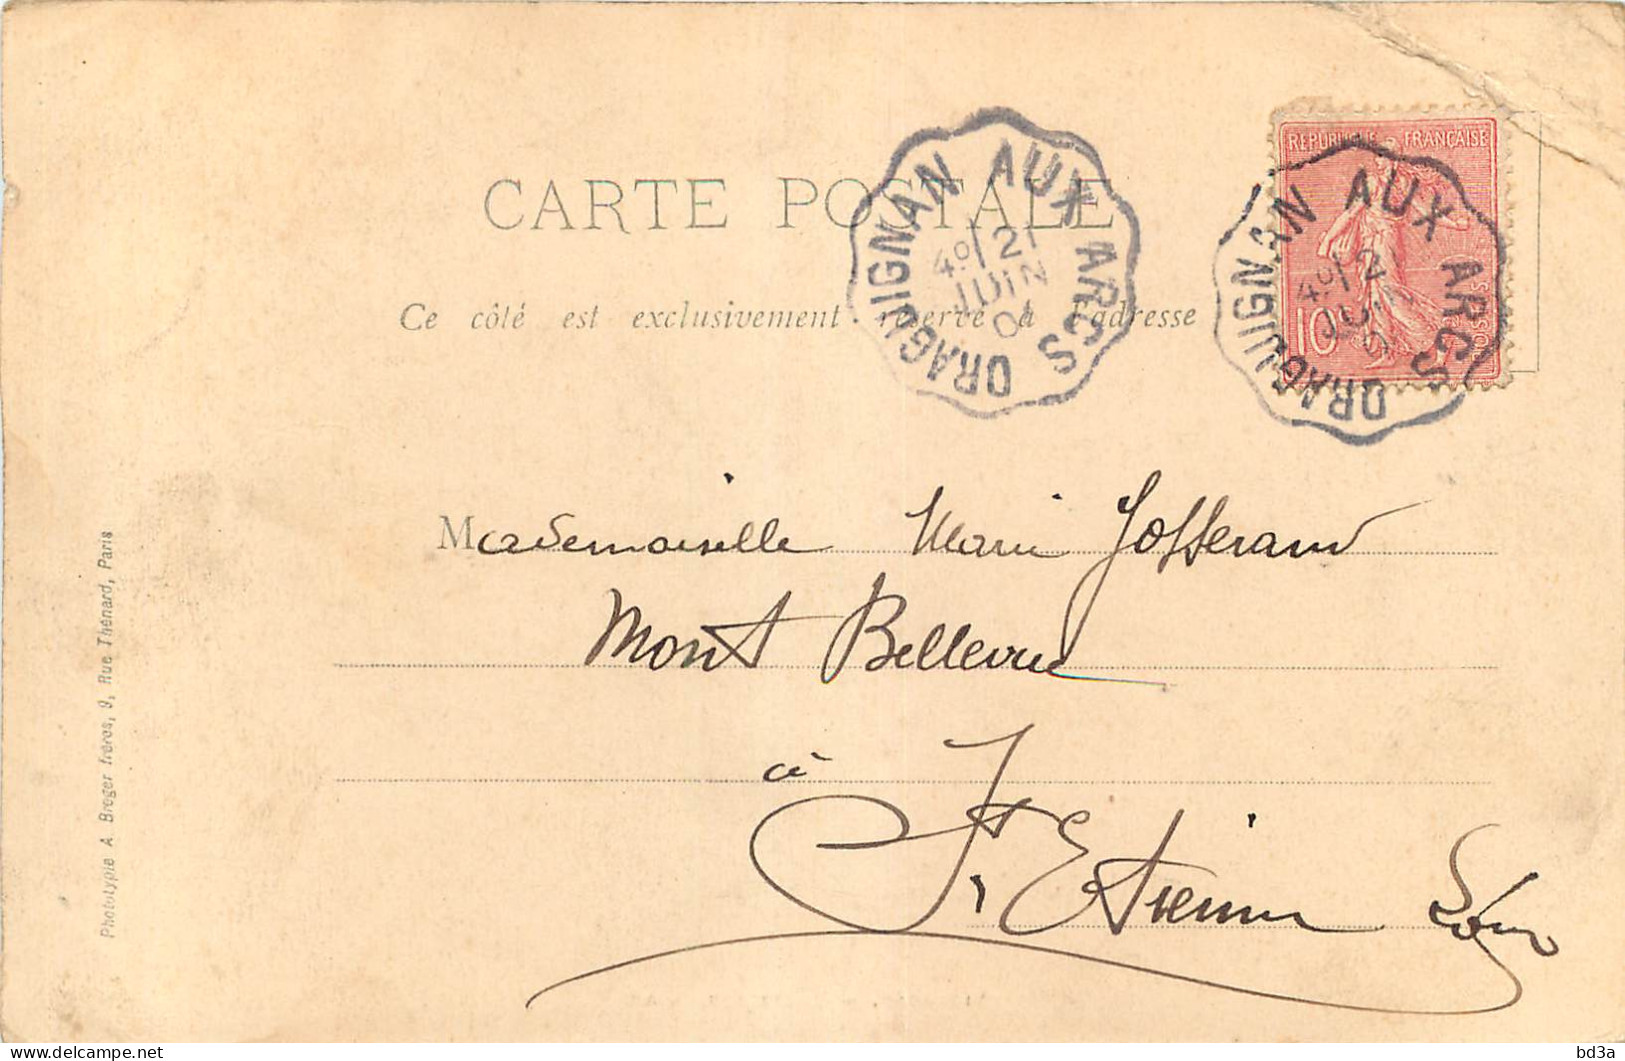 RÉPUBLIQUE FRANÇAISE
10
POSTES
CARTE POSTALE
DRAGUIGNAN AUX ARCS
4º/21
JUIN
DRAGUIGNAN AUX ARCS
4º/21
JUIN
Ce côté est exclusivement réservé à l'adresse
Mademoiselle Marie Josserand
Mont Bellevue
à
St Etienne Loire
Phototypie A Breger frères, 9, Rue Thénard, Paris
bd3a